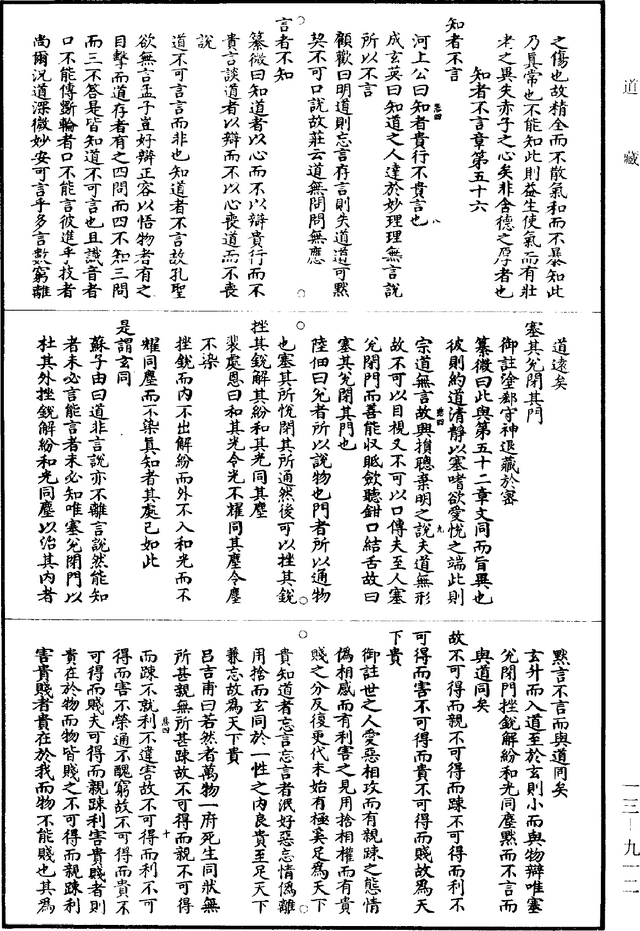 道藏
之傷也故精全而不散氣和而不暴知此
乃眞常也不能知此則益生使氣而有壯
老之異失赤子之心矣非含德之厚者也
知者不言章第五十六
知者不言
河上公曰知者貴行不貴言也
成玄英曰知道之人達於妙理理無言說
所以不言
顧歡曰明道則忘言存言則失道道可默
契不可口說故莊云道無問問無應
言者不知
纂微曰知道者以心而不以辯貴行而不
貴言談道者以辯而不以心喪道而不喪
說
道不可言言而非也知道者不言故孔聖
欲無言孟子豈好辯正容以悟物者有之
目擊而道存者有之四問而四不知三問
而三不答是皆知道不可言也且識音者
口不能傳斲輪者口不能言彼進乎技者
尚爾況道深微妙安可言乎多言數窮離
道遠矣
塞其兌閉其門
御註塗郄守神退藏於密
纂微曰此與第五十二章文同而旨異也
彼則約道清靜以塞嗜欲愛悅之端此則
宗道無言故與損聰棄明之說夫道無形
故不可以目視又不可以口傳夫至人塞
兌閉門而善能收眡斂聽鉗口結舌故曰
塞其兌閉其門也
陸佃曰兌者所以說物也門者所以通物
也塞其所悅閉其所通然後可以挫其銳
挫其銳解其紛和其光同其塵
裴處恩曰和其光令光不耀同其塵令塵
不染
挫銳而內不出解紛而外不入和光而不
耀同塵而不染眞知者其處已如此
是謂玄同
蘇子由曰道非言說亦不離言說然能知
者未必言能言者未必知唯塞兌閉門以
杜其外挫銳解紛和光同塵以治其內者
默言不言而與道同矣
玄升而入道至於玄則小而與物辯唯塞
兌閉門挫銳解紛和光同塵默而不言而
與道同矣
故不可得而親不可得而踈不可得而利不
可得而害不可得而貴不可得而賤故爲天
下貴
御註世之人愛惡相攻而有親踈之態情
偽相感而有利害之見用捨相權而有貴
賤之分反復更代未始有極奚足爲天下
貴知道者忘言忘言者泯好惡忘情偽離
用捨而玄同於一性之內良貴至足天下
兼忘故爲天下貴
呂吉甫曰若然者萬物一府死生同狀無
所甚親無所甚踈故不可得而親不可得
而踈不就利不違害故不可得而利不可
得而害不榮通不醜窮故不可得而貴不
可得而賤夫可得而親踈利害貴賤者則
貴在於物而物皆賤之不可得而親踈利
害貴賤者貴在於我而物不能賤也其爲
一三—九一二